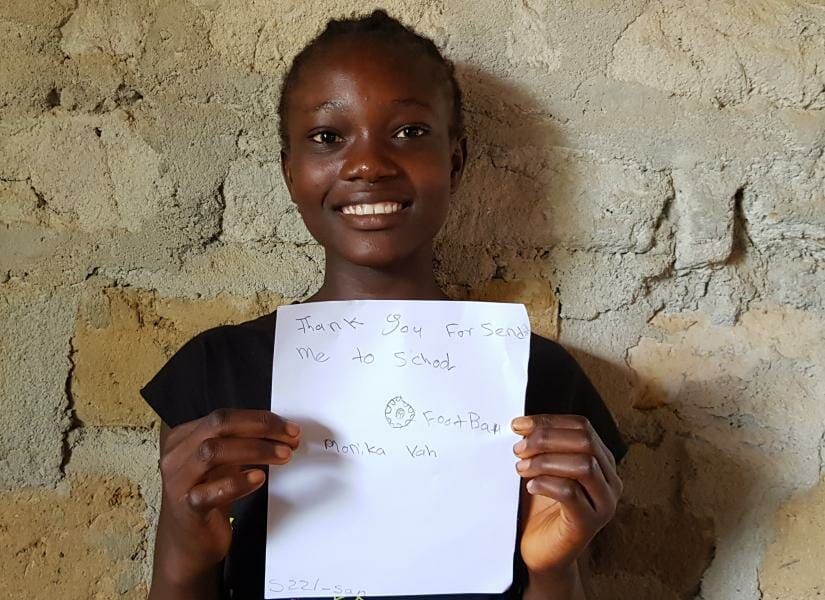 Thank you For Send
me to School
FootBall
Monika Vah
S221-San